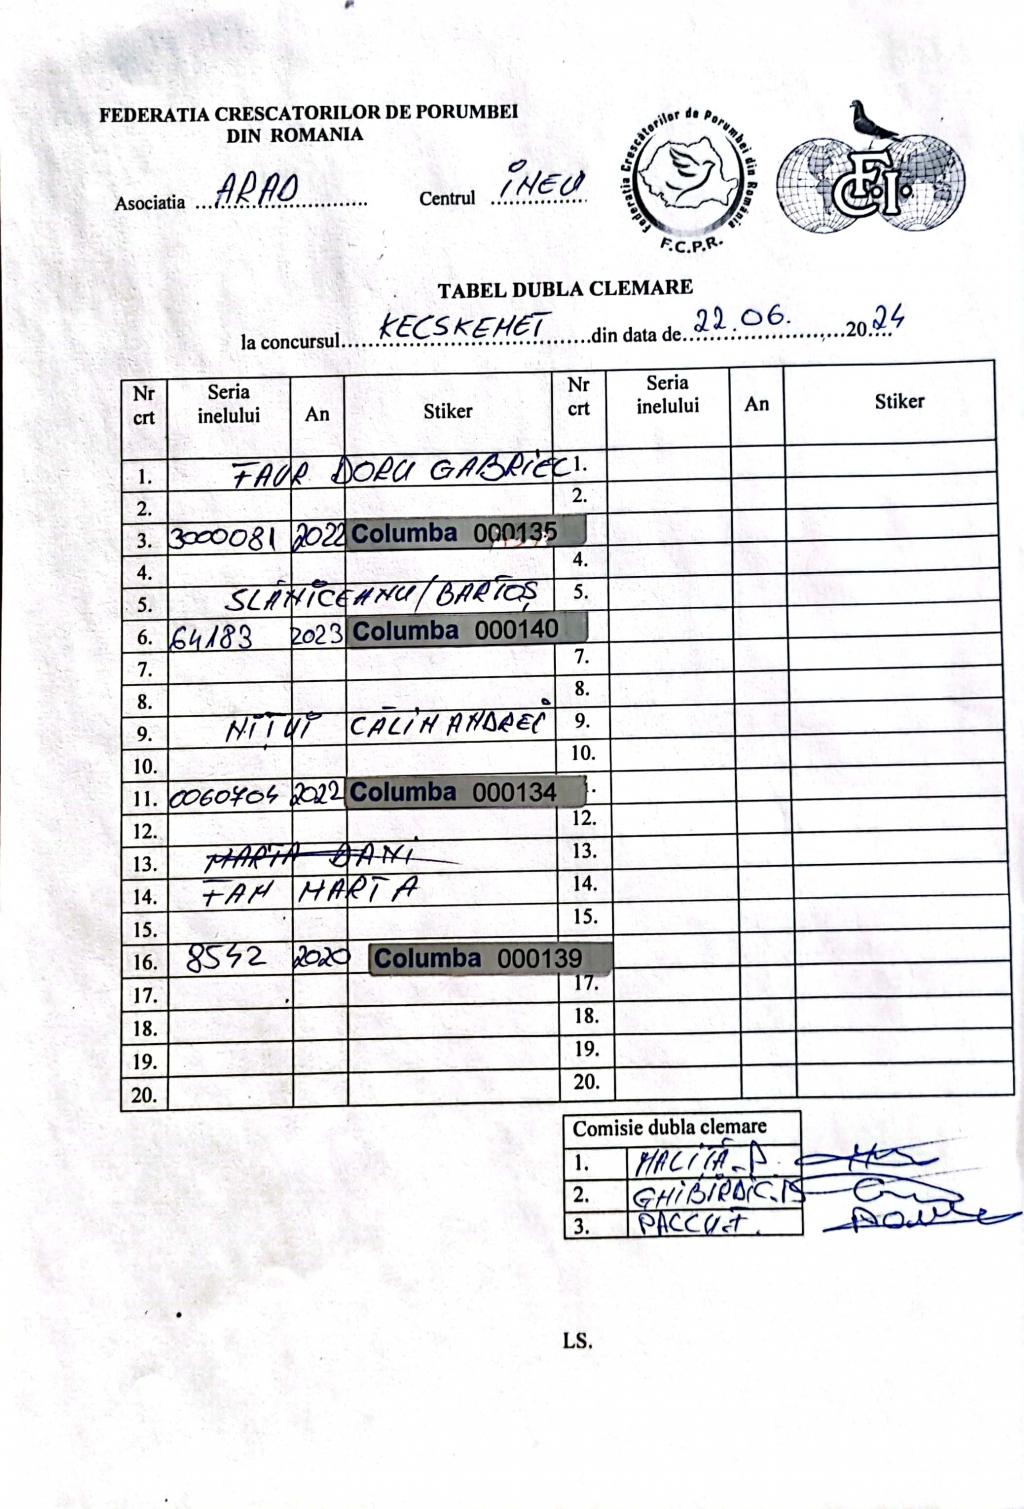 FEDERATIA CRESCATORILOR DE PORUMBEI
DIN ROMANIA
Asociatia ARAD Centrul INEU
Federația Crescătorilor de Porumbei din România
F.C.P.R.
F.C.I.
TABEL DUBLA CLEMARE
la concursul KECSKEMET din data de 22.06. 2024
Nr crt Seria inelului An Stiker Nr crt Seria inelului An Stiker
1. FAUR DORU GABRIEL 1.
2. 2.
3. 3000081 2022 Columba 000135
4. 4.
5. SLĂNICEANU/BARTOȘ 5.
6. 64183 2023 Columba 000140
7. 7.
8. 8.
9. NIȚUI CĂLIN ANDREI 9.
10. 10.
11. 0060704 2022 Columba 000134 1.
12. 12.
13. MARTA DANI 13.
14. FAM MARTA 14.
15. 15.
16. 8542 2020 Columba 000139
17. 17.
18. 18.
19. 19.
20. 20.
Comisie dubla clemare
1. MALIȚĂ.P.
2.
3.
LS.